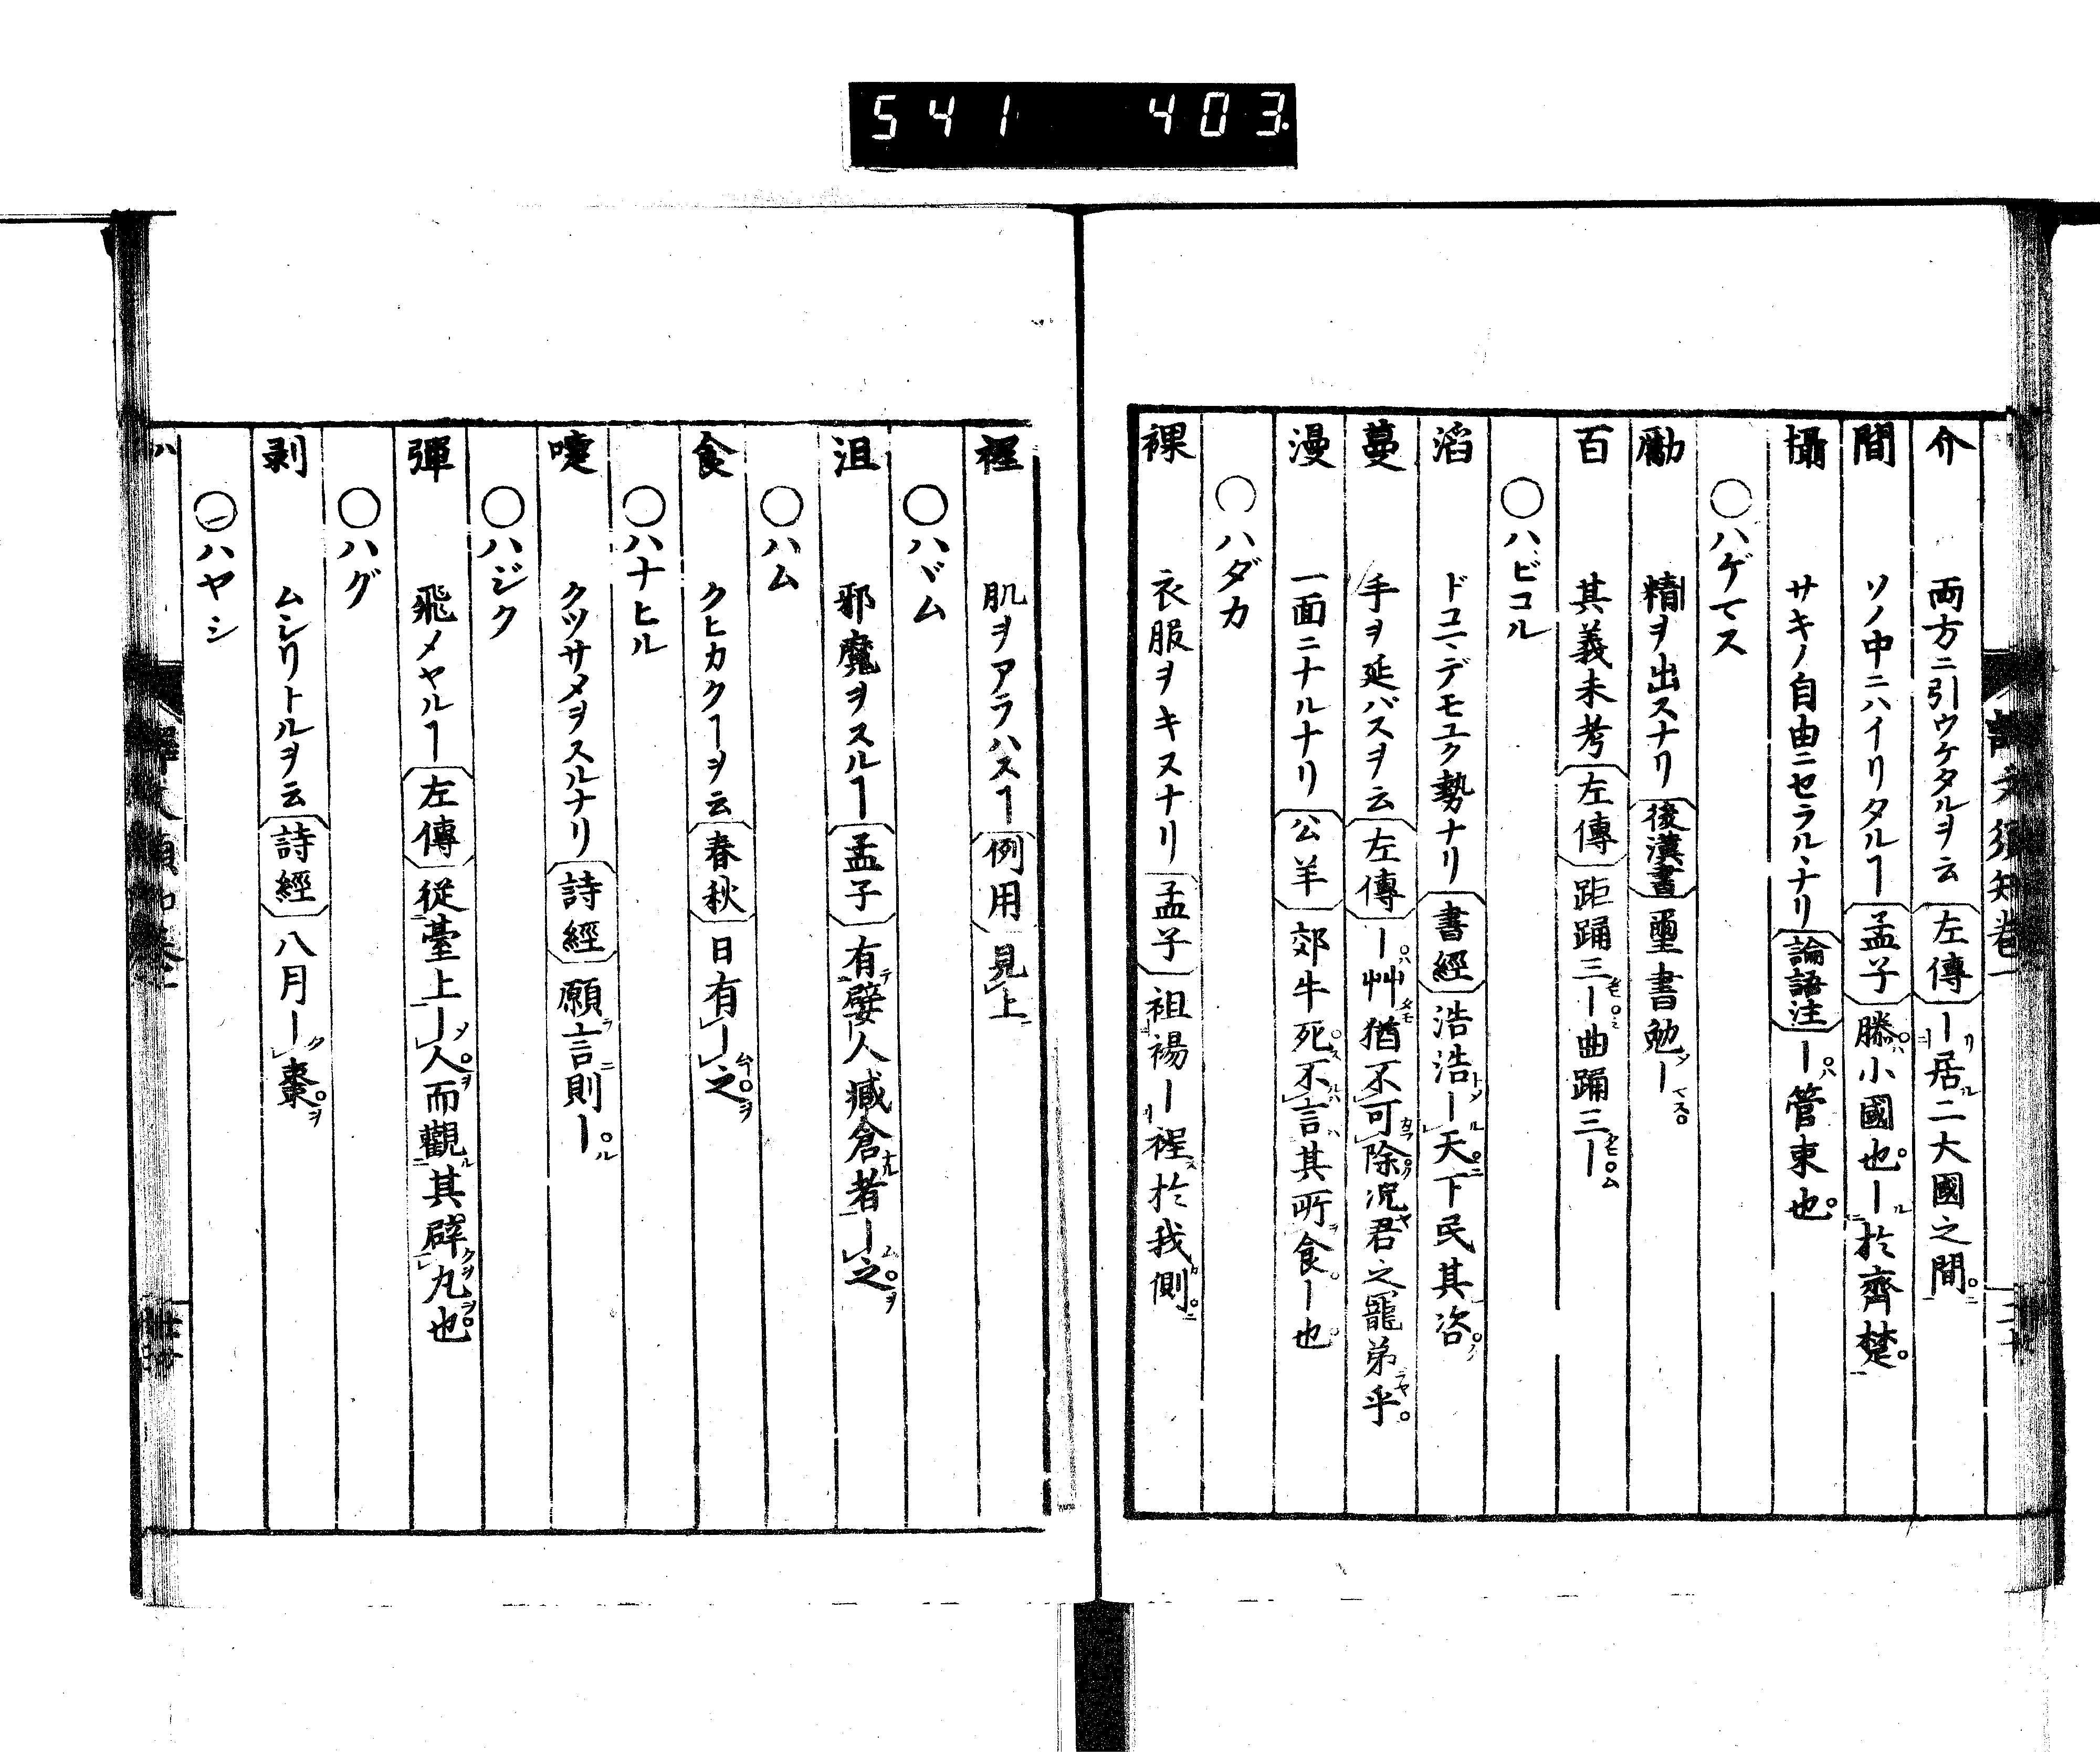 541 403.
介 両方ニ引ウケタルヲ云 左傳 ー居二大國之間
間 ソノ中ニハイリタルヿ 孟子 滕小國也ー於齊楚
攝 サキノ自由ニセラルヽナリ 論語注 ー管束也
〇ハゲマス
勵 精ヲ出スナリ 後漢書 璽書勉ー
百 其義未考 左傳 距踊三ー曲踊三ー
〇ハビコル
滔 ドコマデモユク勢ナリ 書經 浩浩ー天下民其咨
蔓 手ヲ延バスヲ云 左傳 ー艸猶不可除況君之寵弟乎
漫 一面ニナルナリ 公羊 郊牛死不言其所食ー也
〇ハダカ
裸 衣服ヲキヌナリ 孟子 袒裼ー裎於我側
裎 肌ヲアラハスヿ 例用 見上
〇ハヾム
沮 邪魔ヲスルヿ 孟子 有嬖人臧倉者ー之
〇ハム
食 クヒカクヿヲ云 春秋 日有ー之
〇ハナヒル
嚏 クツサメヲスルナリ 詩經 願言則ー
〇ハジク
彈 飛メヤルヿ 左傳 従臺上ー人而觀其辟丸也
〇ハグ
剥 ムシリトルヲ云 詩經 八月ー棗
〇ハヤシ
ハ